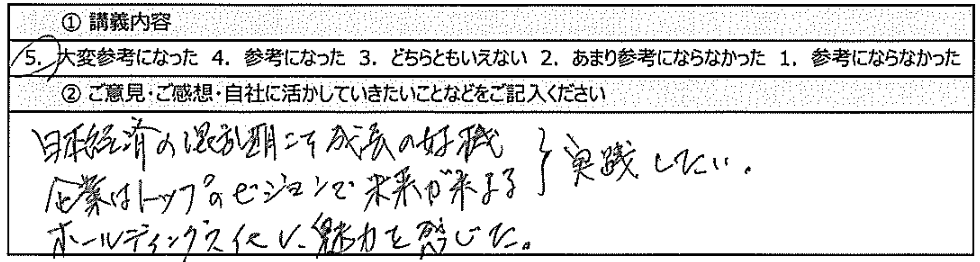 ① 講義内容
5. 大変参考になった 4. 参考になった 3. どちらともいえない 2. あまり参考にならなかった 1. 参考にならなかった
② ご意見・ご感想・自社に活かしていきたいことなどをご記入ください
日本経済の混乱期こそ成長の好機
企業はトップのビジョンで未来が来まる } 実践したい。
ホールディングス化に魅力を感じた。